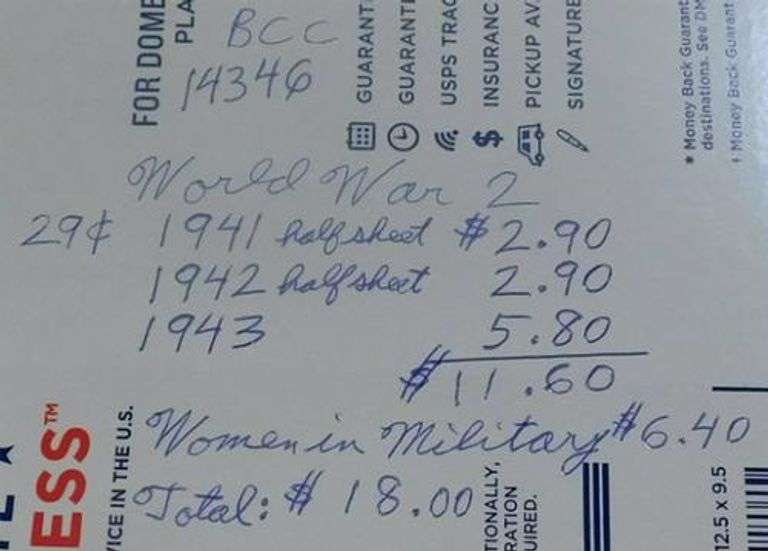 BCC
14346
World War 2
29¢ 1941 half sheet $2.90
1942 half sheet 2.90
1943 5.80
$11.60
Women in Military $6.40
Total: $ 18.00
FOR DOME
PLA
GUARANT
GUARANT
USPS TRAC
$ INSURANC
PICKUP AV
SIGNATURE
* Money Back Guarant
destinations. See DM
† Money Back Guarant
ESS™
VICE IN THE U.S.
TIONALLY,
RATION
UIRED.
12.5 x 9.5